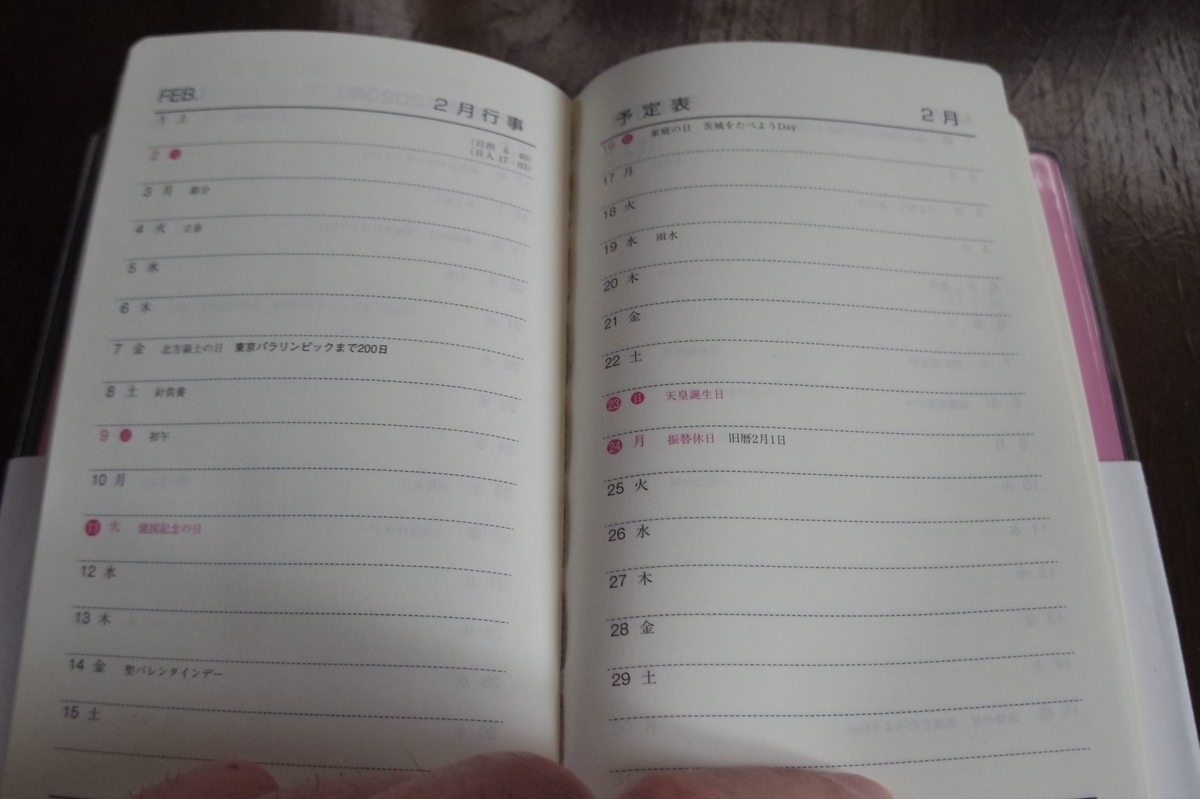 FEB. 2月行事
1 土 (日出 6:40)
2 日 (日入 17:03)
3 月 節分
4 火 立春
5 水
6 木
7 金 北方領土の日 東京パラリンピックまで200日
8 土 針供養
9 日 初午
10 月
11 火 建国記念の日
12 水
13 木
14 金 聖バレンタインデー
15 土
予定表 2月
16 日 家庭の日 茨城をたべようDay
17 月
18 火
19 水 雨水
20 木
21 金
22 土
23 日 天皇誕生日
24 月 振替休日 旧暦2月1日
25 火
26 水
27 木
28 金
29 土